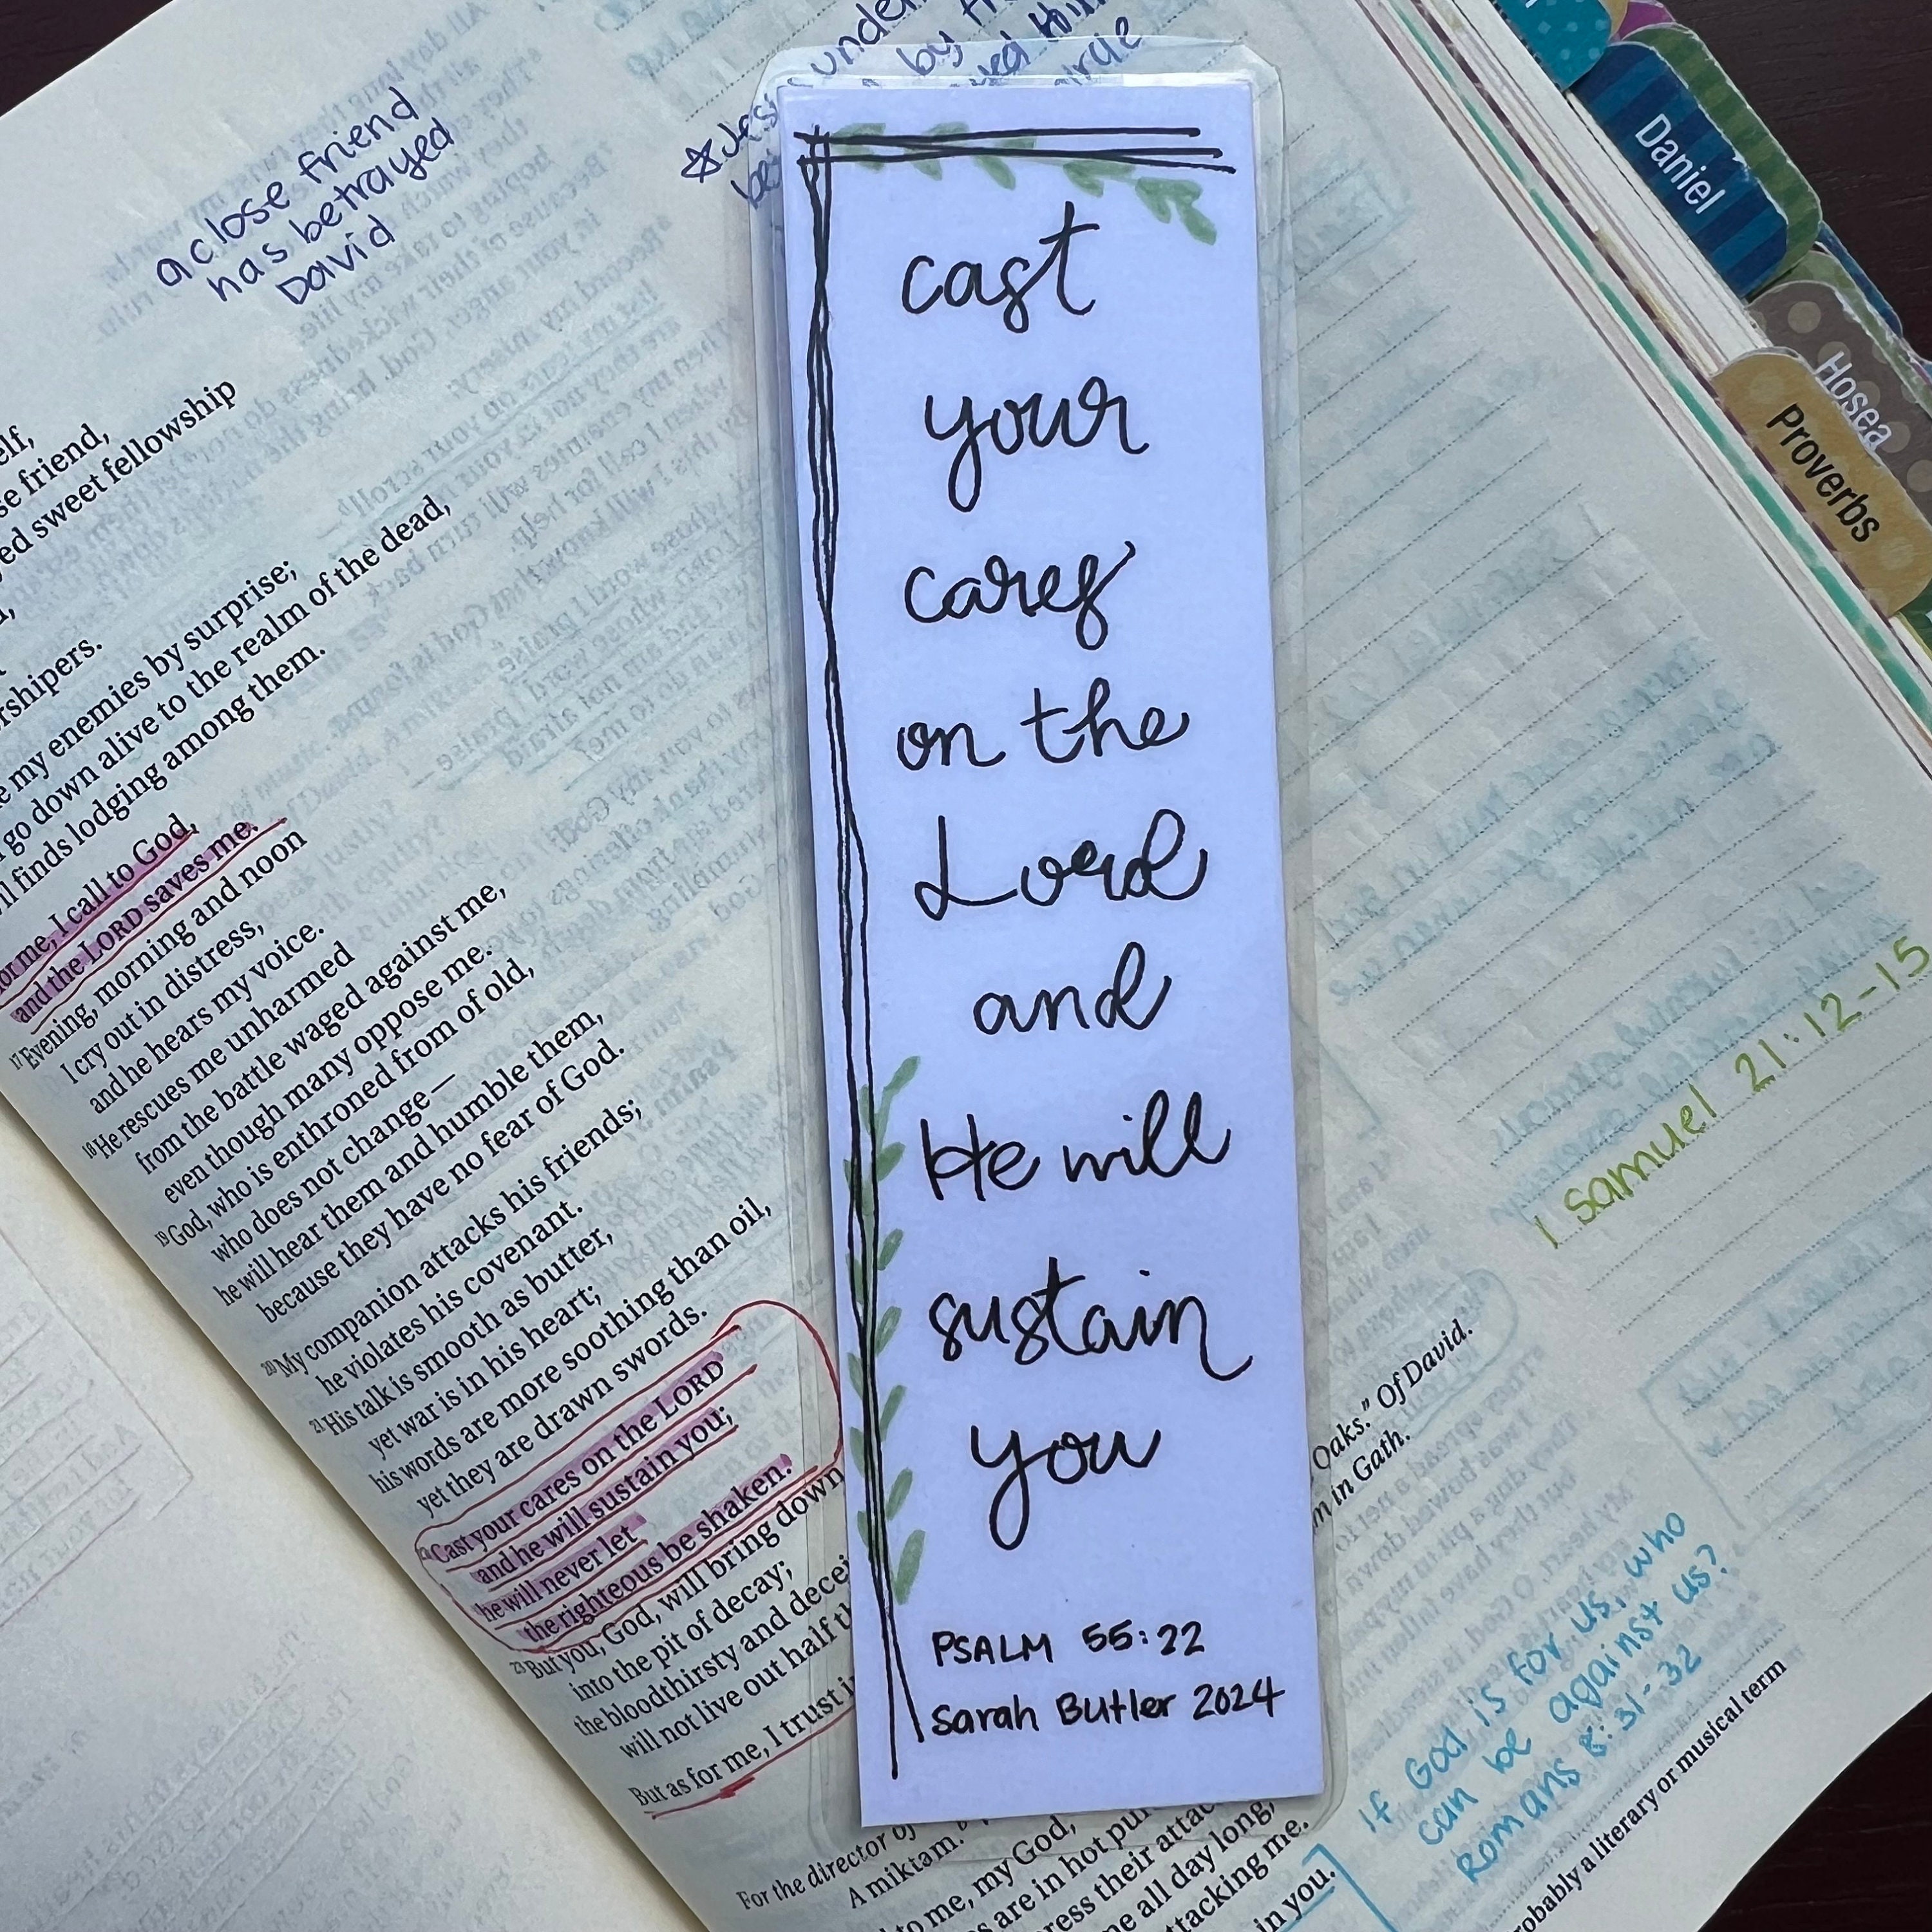 a close friend
has betrayed
David
by
circle
Daniel
Hosea
Proverbs
cast
your
cares
on the
Lord
and
He will
sustain
you
PSALM 55:22
Sarah Butler 2024
friend,
sweet fellowship
my enemies by surprise;
go down alive to the realm of the dead,
finds lodging among them.
me, I call to God,
and the LORD saves me.
17 Evening, morning and noon
I cry out in distress,
and he hears my voice.
18 He rescues me unharmed
from the battle waged against me,
even though many oppose me.
19 God, who is enthroned from of old,
who does not change—
he will hear them and humble them,
because they have no fear of God.
20 My companion attacks his friends;
he violates his covenant.
21 His talk is smooth as butter,
yet war is in his heart;
his words are more soothing than oil,
yet they are drawn swords.
22 Cast your cares on the LORD
and he will sustain you;
he will never let
the righteous be shaken.
23 But you, God, will bring down
into the pit of decay;
the bloodthirsty and
will not live out half
But as for me, I trust
For the director of
Oaks." Of David.
A miktam.
in Gath.
to me, my God,
are in hot
their
me all day long,
attacking me.
in you.
1 samuel 21:12-15
If God is for us, who
can be against us?
Romans 8:31-32
a literary or musical term